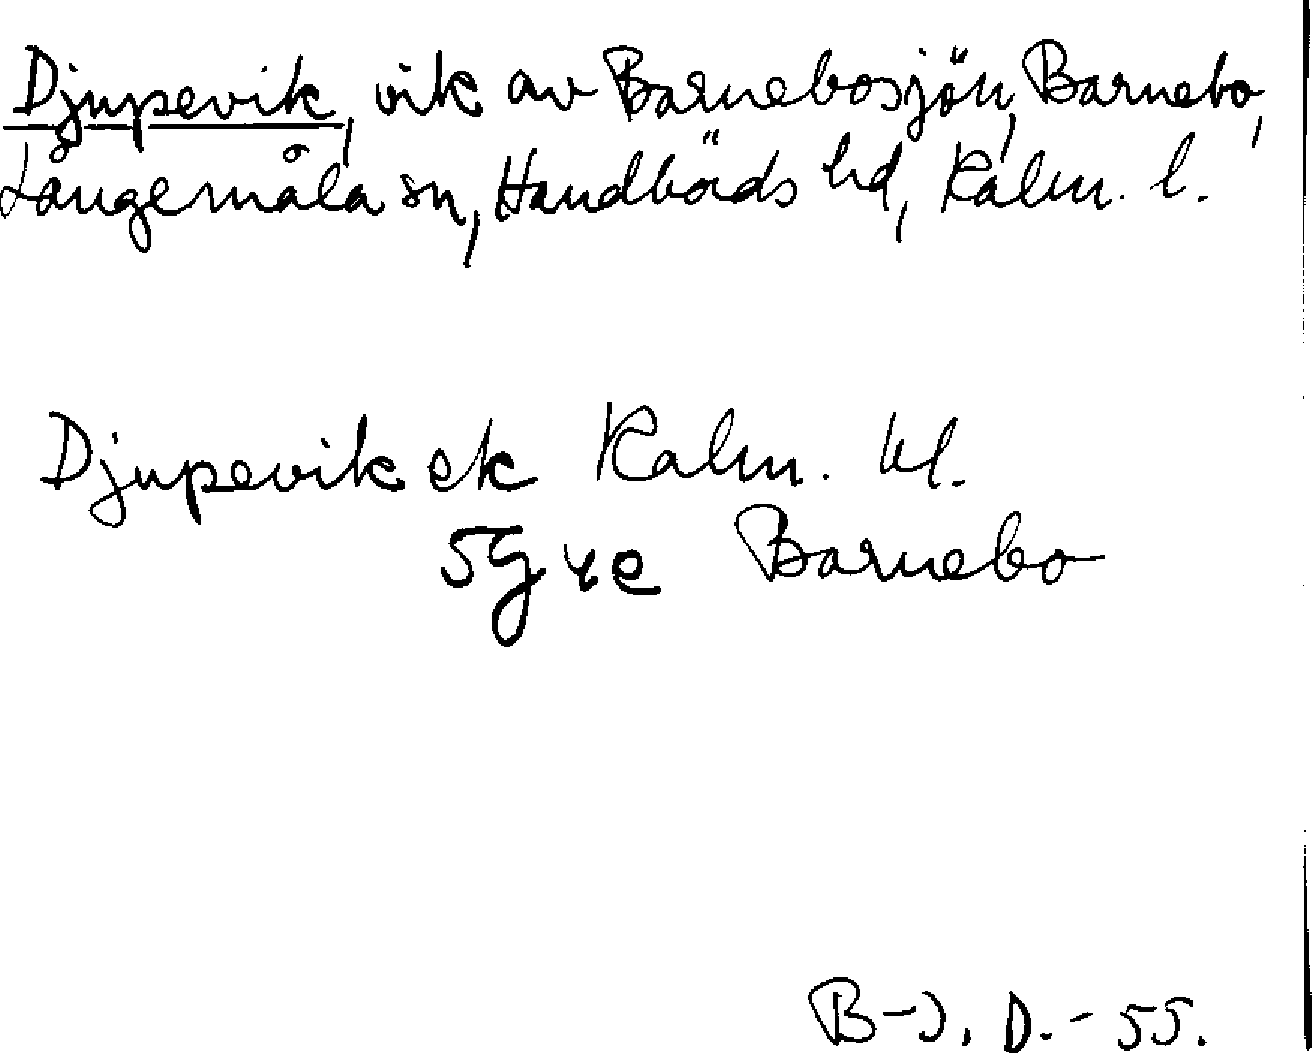 Djupevik, vik av Barnebosjön, Barnebo,
Långemåla sn, Handbörds hd, Kalm. l.
Djupevik ek Kalm. bl.
5g 4e Barnebo
B-J. D. - 55.